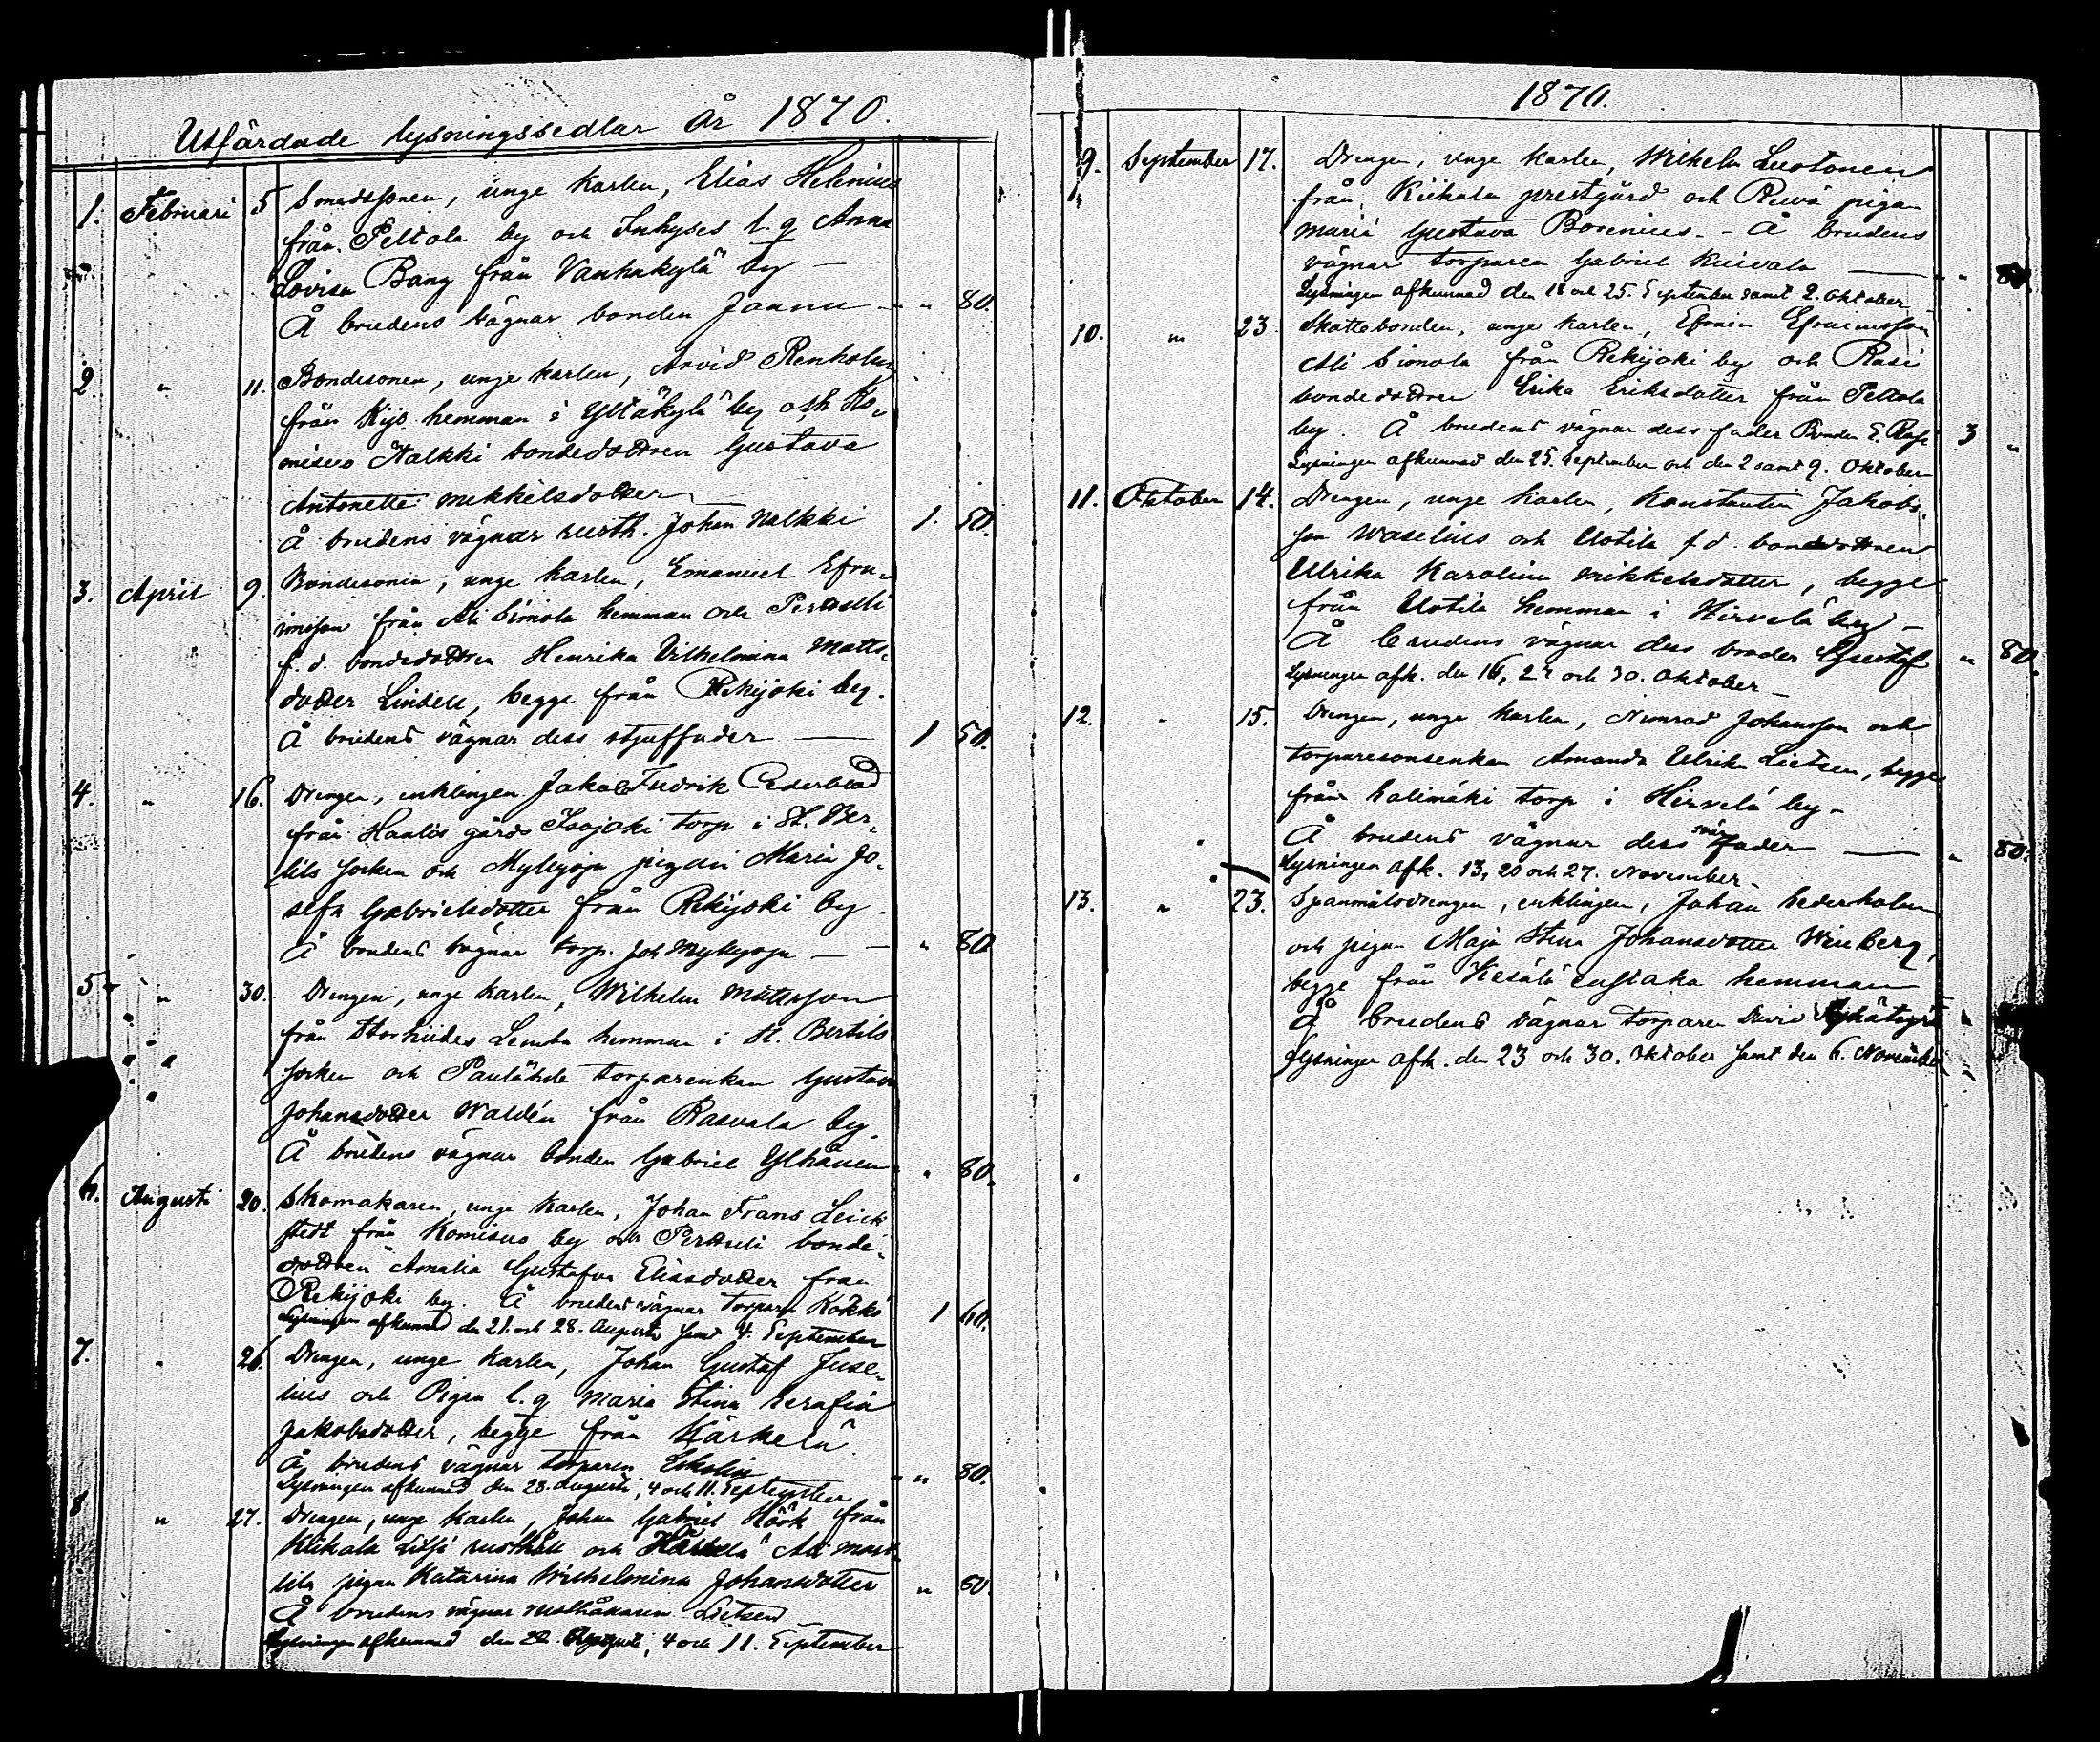 Utfärdade lysningssedlar År 1870.
1. Februari 5 Smedssonen, unge karlen, Elias Helenius
från Peltola by och Inhyses l. q Anna
Lovisa Bang från Vanhakylä by —
Å brudens vägnar bonden Jaanu — " 80.
2. " 11. Bondesonen, unge karlen, Arvid Renholm
från Kijo hemman i Yltäkylä by och Ko-
misuo Nalkki bondedottren Gustava
Antonette Mikkelsdotter
Å brudens vägnar rusth. Johan Nalkki 1. 50.
3. April 9. Bondesonen, unge karlen, Emanuel Efra-
imsson från Ali Simola hemman och Pertteli
f. d. bondedottren Henrika Vilhelmina Matts-
dotter Lindell, begge från Rekijoki by.
Å brudens vägnar dess stjuffader — 1 50.
4. " 16. Drengen, enklingen Jakob Fredrik Cederblad
från Hanlös gårds Isojoki torp i St. Ber-
tils socken och Myllyoja pigan Maria Jo-
sefa Gabrielsdotter från Rekijoki by —
Å brudens vägnar torp. Joh Myllyoja — " 80
5 " 30. Drengen, unge karlen, Wilhelm Mattsson
från Storhiides Lemba hemman i St. Bertils
socken och torparenkan Gustava
Johansdotter Waldén från Rasvala by.
Å brudens vägnar bonden Gabriel Ylhänen " 80.
6. Augusti 20. Skomakaren, unge karlen, Johan Frans Leick-
stedt från Komisuo by och Perttuli bonde-
dottren Amalia Gustafva Eliasdotter från
Rekijoki by. Å brudens vägnar torparn Kokko 1 60.
Lysningen afkunnad den 21. och 28. Augusti samt 4. September
7. " 26. Drengen, unge karlen, Johan Gustaf Juse-
lius och Pigan l. q Maria Stina Serafia
Jakobsdotter, begge från Kärkelä.
Å brudens vägnar torparen Ekolin " 80.
Lysningen afkunnad den 28. Augusti, 4 och 11. September
8 " 27. Drengen, unge karlen, Johan Gabriel Höök från
Kiikala Lilsi rusthåll och Ali Mart-
tila pigan Katarina Wilhelmina Johansdotter " 60.
Å brudens vägnar målhåkaren Lietsen —
Lysningen afkunnad den 28. Augusti, 4 och 11. September
1870.
9. September 17. Drengen, unge karlen, Wilhelm Luotonen
från Kiikala prestgård och Riuva pigan
Maria Gustava Borenius. — Å brudens
vägnar torparen Gabriel Kuivala — " 80.
Lysningen afkunnad den 18 och 25. September samt 2. Oktober
10. " 23 Skattebonden, unge karlen, Efraim Efraimsson
Ali Simola från Rekijoki by och Rasi
bondedottren Erika Eriksdotter från Peltola
by. Å brudens vägnar dess fader Bonden E. Rasi 3 "
Lysningen afkunnad den 25. September och den 2 samt 9. Oktober
11. Oktober 14. Drengen, unge karlen, Konstantin Jakobs-
son Waselius och Uotila f. d. bondedottren
Ulrika Karolina Mikkelsdotter, begge
från Uotila hemman i Hirvelä by —
Å brudens vägnar dess broder Gustaf " 80.
Lysningen afk. den 16, 23 och 30. Oktober —
12. " 15. Drengen, unge karlen, Nimrod Johansson och
torparesonsenkan Amanda Ulrika Lietsen, begge
från Salimäki torp i Hirvelä by —
Å brudens vägnar dess svärfader — " 80.
Lysningen afk. 13, 20 och 27. November —
13. " 23. Spanmålsdrengen, enklingen, Johan Sederholm
och pigan Maja Stina Johansdotter Winberg,
begge från Kesälä Eustaka hemman
Å brudens vägnar torparen David
Lysningen afk. den 23 och 30. Oktober samt den 6. November